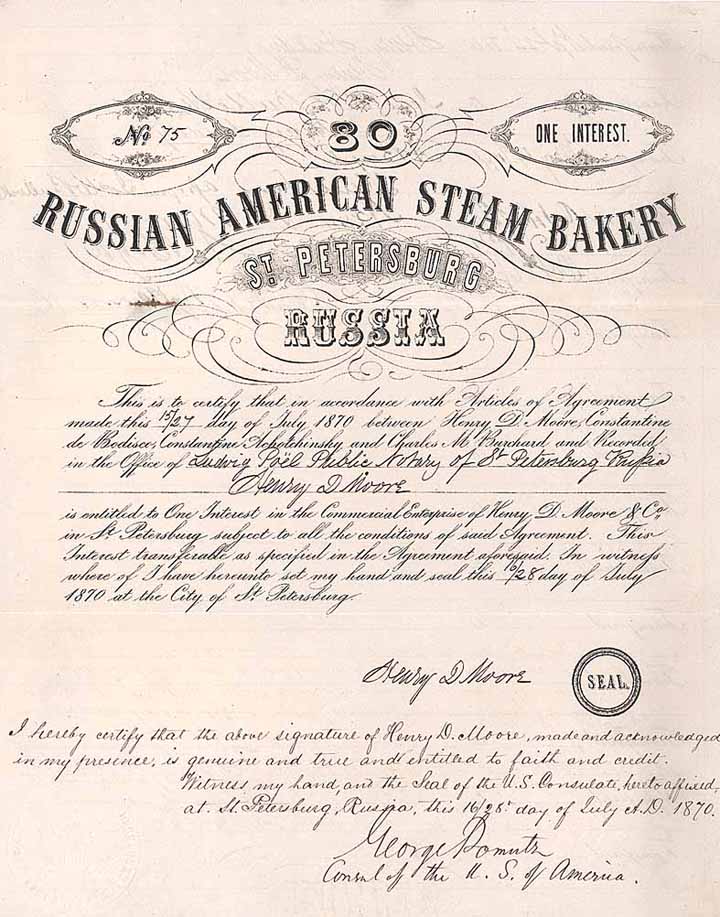 No. 75
80
ONE INTEREST.
RUSSIAN AMERICAN STEAM BAKERY
ST. PETERSBURG
RUSSIA
This is to certify that in accordance with Articles of Agreement
made this 15/27 day of July 1870 between Henry D Moore, Constantine
de Bodisco, Constantine Achotchinsky and Charles M Burchard and Recorded
in the Office of Ludwig Poël Public Notary of St Petersburg Russia
Henry D Moore
is entitled to One Interest in the Commercial Enterprise of Henry D. Moore & Co
in St Petersburg subject to all the conditions of said Agreement. This
Interest transferable as specified in the Agreement aforesaid. In witness
where of I have hereunto set my hand and seal this 16/28 day of July
1870 at the City of St Petersburg.
Henry D Moore
SEAL.
I hereby certify that the above signature of Henry D. Moore, made and acknowledged
in my presence, is genuine and true and entitled to faith and credit.
Witness my hand, and the Seal of the U.S. Consulate, hereto affixed,
at St. Petersburg, Russia, this 16/28 day of July A.D. 1870.
George Pomutz
Consul of the U. S. of America.